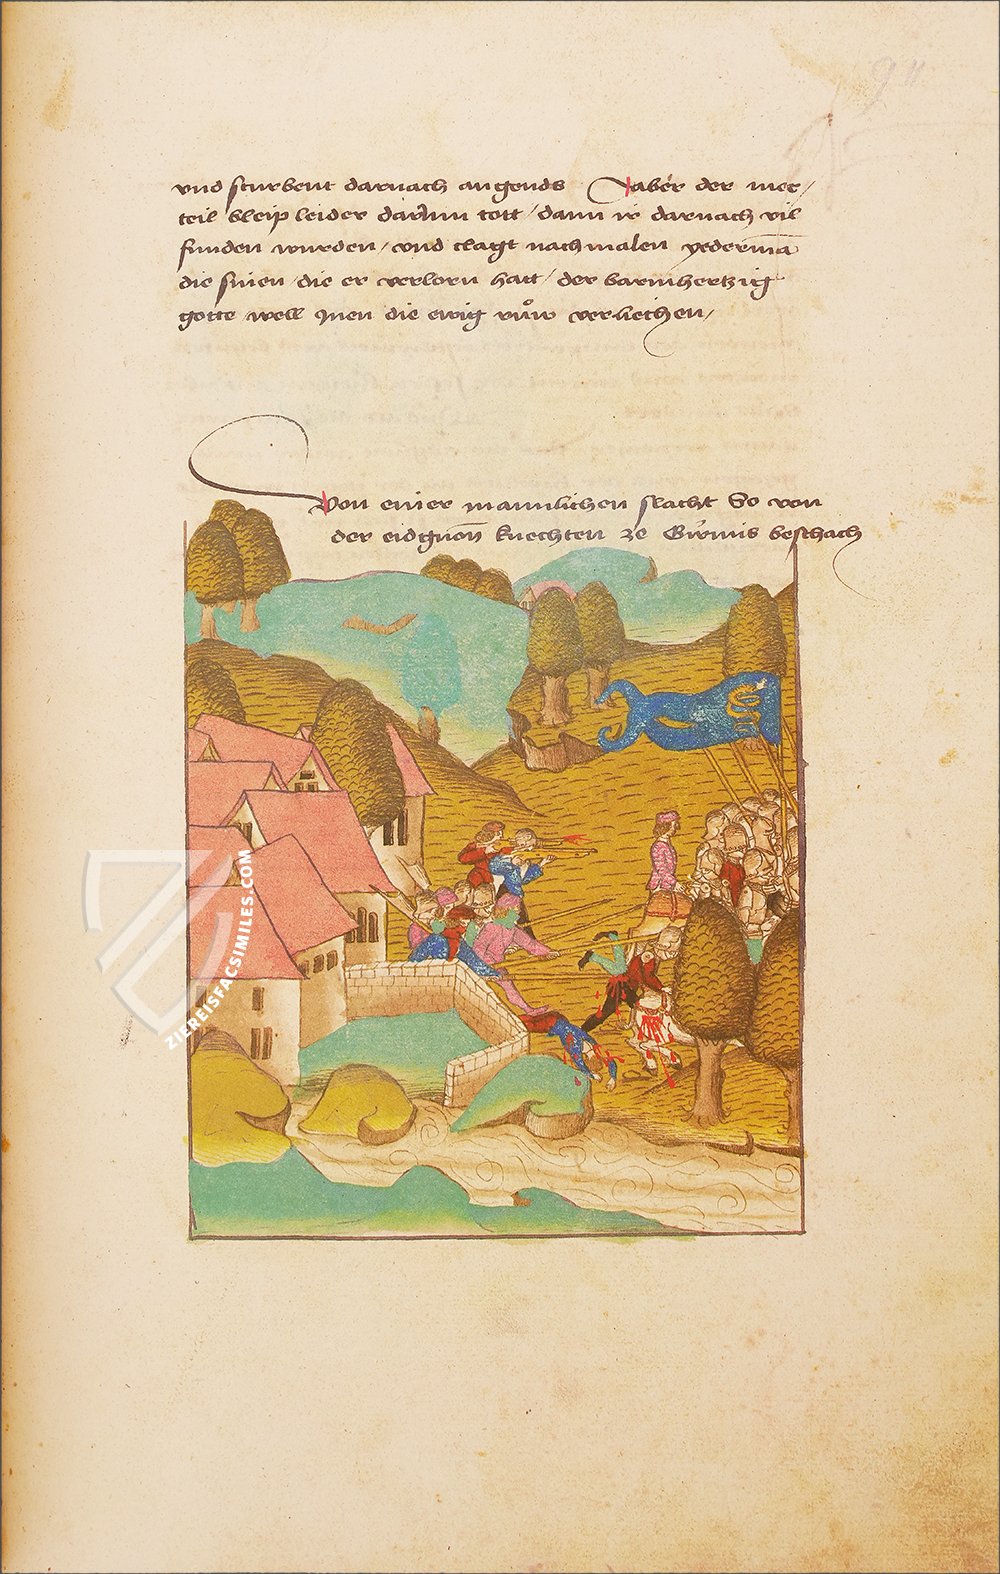 und sturbent darnach angends Aber der mer/
teil bleip leider darinn tott / dann ir darnach vil
funden wurden / und clagt nachmalen yederma̅
die sinen / die er verlorn hatt / der barmhertzig
gotte well Inen die ewig ruͦw verliechen /
Von einer mannlichen slacht So von
der eidgno̅n knechten ze Girnis beschach
ZIEREISFACSIMILES.COM